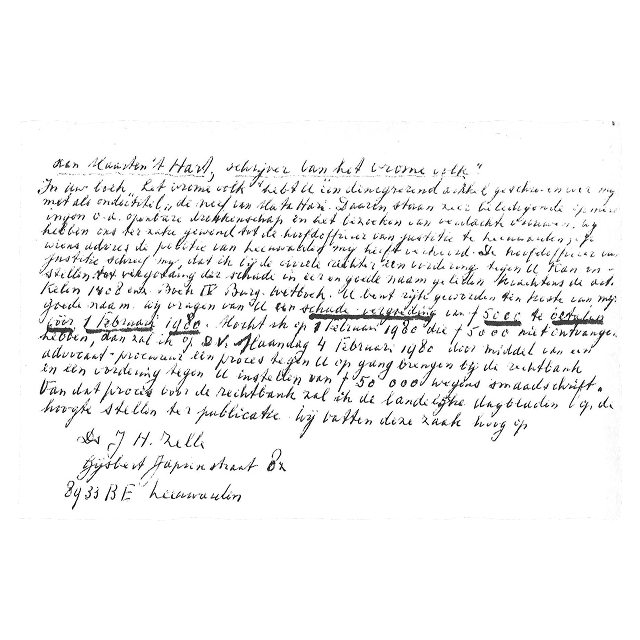 Aan Maarten 't Hart, schrijver van het vrome volk"
In uw boek "het vrome volk" hebt U een denigrerend artikel geschreven over my
met als ondertitel "de neef van Mata Hari. Daarin staan zeer beledigende opmer
ingen o.a. openbare dronkenschap en het bezoeken van verdachte vrouwen. Wy
hebben ons ter zake gewend tot de hoofdofficier van justitie te Leeuwarden,
wiens advres de politie van Leeuwarden my heeft De hoofdofficier van
justitie schreef my, dat ik bij de civiele rechter een vordering tegen U kan in-
stellen tot vergoeding der schade in eer en goede naam geleden krachtens de art
kelen 1408 enz. Boek IV Burg. Wetboek. U bent rijk geworden ten koste van myn
goede naam. Wy vragen van U een schade vergoeding van f 5000 te betalen
vóór 1 Februari 1980. Mocht ik op 1 Februari 1980 die f 5000 niet ontvangen
hebben, dan zal ik op D.V. Maandag 4 Februari 1980 door middel van een
advocaat-procureur een proces tegen U op gang brengen bij de rechtbank
en een vordering tegen U instellen van f 50 000 wegens smaadschrift.
Van dat proces voor de rechtbank zal ik de landelijke dagbladen o.a. de
hoogte stellen ter publicatie. Wy vatten deze zaak hoog op
Ds J H. Zelle
Gijsbert Japicxstraat 82
8933 BE Leeuwarden